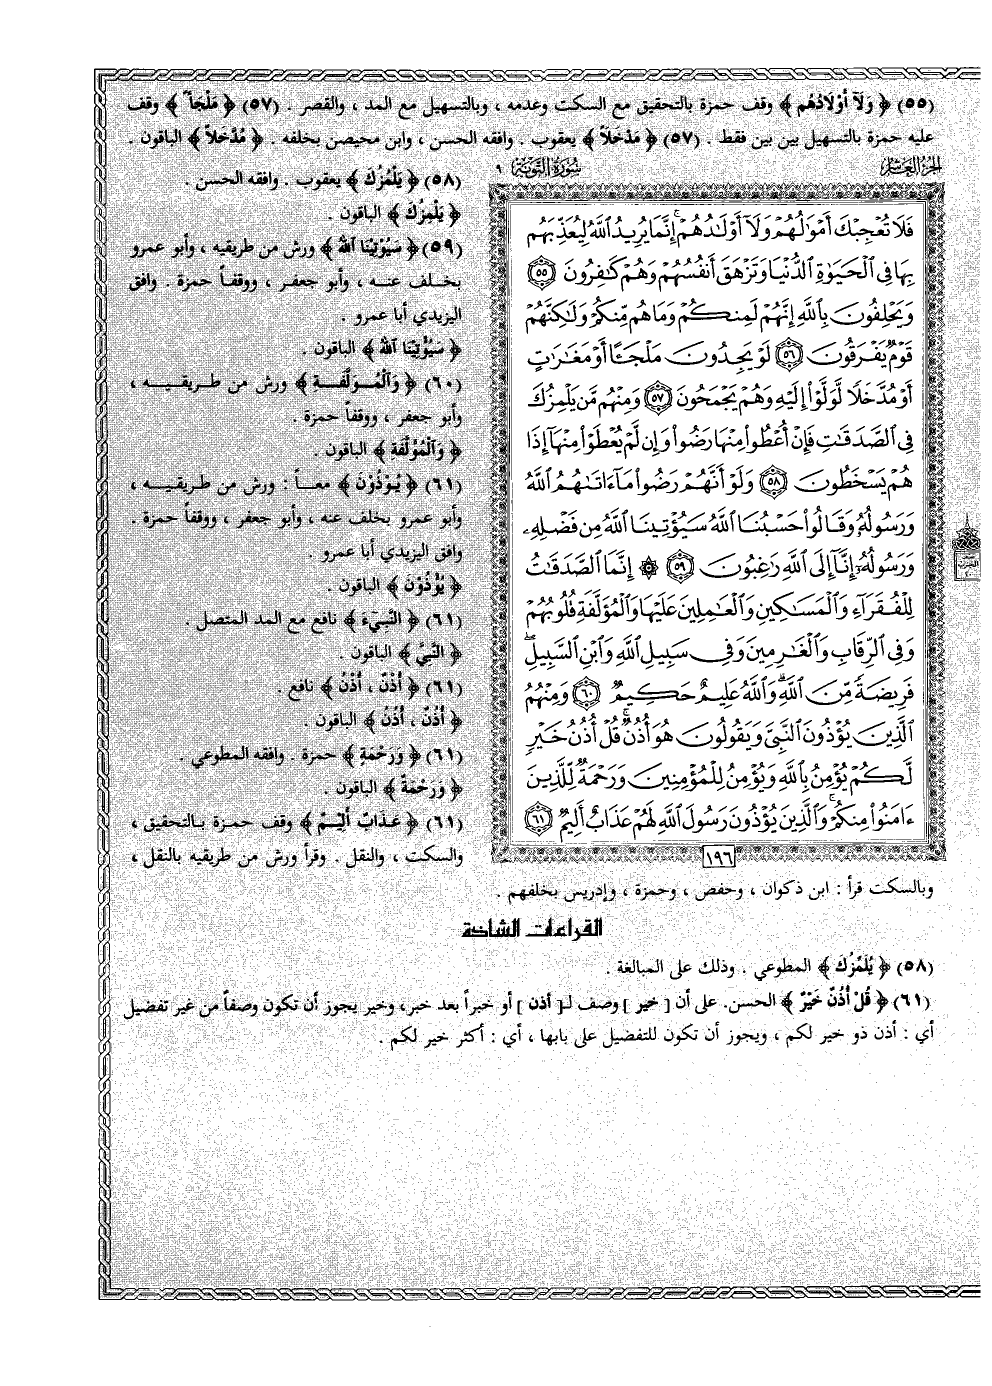 (٥٥) ﴿ وَلَآ أَوْلَادُهُم ﴾ وقف حمزة بالتحقيق مع السكت وعدمه ، وبالتسهيل مع المد ، والقصر . (٥٧) ﴿ مَلْجَأً ﴾ وقف
عليه حمزة بالتسهيل بين بين فقط . (٥٧) ﴿ مَدْخَلاً ﴾ يعقوب . وافقه الحسن ، وابن محيصن بخلفه . ﴿ مُدَّخَلاً ﴾ الباقون .
الجزء العاشر
سورة التوبة ٩
فَلَا تُعْجِبْكَ أَمْوَٰلُهُمْ وَلَآ أَوْلَٰدُهُمْ ۚ إِنَّمَا يُرِيدُ ٱللَّهُ لِيُعَذِّبَهُم
بِهَا فِى ٱلْحَيَوٰةِ ٱلدُّنْيَا وَتَزْهَقَ أَنفُسُهُمْ وَهُمْ كَٰفِرُونَ ٥٥
وَيَحْلِفُونَ بِٱللَّهِ إِنَّهُمْ لَمِنكُمْ وَمَا هُم مِّنكُمْ وَلَٰكِنَّهُمْ
قَوْمٌ يَفْرَقُونَ ٥٦ لَوْ يَجِدُونَ مَلْجَـًٔا أَوْ مَغَٰرَٰتٍ
أَوْ مُدَّخَلًا لَّوَلَّوْا۟ إِلَيْهِ وَهُمْ يَجْمَحُونَ ٥٧ وَمِنْهُم مَّن يَلْمِزُكَ
فِى ٱلصَّدَقَٰتِ فَإِنْ أُعْطُوا۟ مِنْهَا رَضُوا۟ وَإِن لَّمْ يُعْطَوْا۟ مِنْهَآ إِذَا
هُمْ يَسْخَطُونَ ٥٨ وَلَوْ أَنَّهُمْ رَضُوا۟ مَآ ءَاتَىٰهُمُ ٱللَّهُ
وَرَسُولُهُۥ وَقَالُوا۟ حَسْبُنَا ٱللَّهُ سَيُؤْتِينَا ٱللَّهُ مِن فَضْلِهِۦ
وَرَسُولُهُۥٓ إِنَّآ إِلَى ٱللَّهِ رَٰغِبُونَ ٥٩ ۞ إِنَّمَا ٱلصَّدَقَٰتُ
لِلْفُقَرَآءِ وَٱلْمَسَٰكِينِ وَٱلْعَٰمِلِينَ عَلَيْهَا وَٱلْمُؤَلَّفَةِ قُلُوبُهُمْ
وَفِى ٱلرِّقَابِ وَٱلْغَٰرِمِينَ وَفِى سَبِيلِ ٱللَّهِ وَٱبْنِ ٱلسَّبِيلِ ۖ
فَرِيضَةً مِّنَ ٱللَّهِ ۗ وَٱللَّهُ عَلِيمٌ حَكِيمٌ ٦٠ وَمِنْهُمُ
ٱلَّذِينَ يُؤْذُونَ ٱلنَّبِىَّ وَيَقُولُونَ هُوَ أُذُنٌ ۚ قُلْ أُذُنُ خَيْرٍ
لَّكُمْ يُؤْمِنُ بِٱللَّهِ وَيُؤْمِنُ لِلْمُؤْمِنِينَ وَرَحْمَةٌ لِّلَّذِينَ
ءَامَنُوا۟ مِنكُمْ ۚ وَٱلَّذِينَ يُؤْذُونَ رَسُولَ ٱللَّهِ لَهُمْ عَذَابٌ أَلِيمٌ ٦١
١٩٦
(٥٨) ﴿ يَلْمُزُكَ ﴾ يعقوب . وافقه الحسن .
﴿ يَلْمِزُكَ ﴾ الباقون .
(٥٩) ﴿ سَيُوتِينَا ٱللهُ ﴾ ورش من طريقيه ، وأبو عمرو
بخلف عنه ، وأبو جعفر ، ووقفاً حمزة . وافق
اليزيدي أبا عمرو .
﴿ سَيُؤْتِينَا ٱللهُ ﴾ الباقون .
(٦٠) ﴿ وَالْمُوَلَّفَةِ ﴾ ورش من طريقيه ،
وأبو جعفر ، ووقفاً حمزة .
﴿ وَالْمُؤَلَّفَةِ ﴾ الباقون .
(٦١) ﴿ يُوذُونَ ﴾ معاً : ورش من طريقيه ،
وأبو عمرو بخلف عنه ، وأبو جعفر ، ووقفاً حمزة .
وافق اليزيدي أبا عمرو .
﴿ يُؤْذُونَ ﴾ الباقون .
(٦١) ﴿ النَّبِيءَ ﴾ نافع مع المد المتصل .
﴿ النَّبِيَّ ﴾ الباقون .
(٦١) ﴿ أُذْنٌ ، أُذْنُ ﴾ نافع .
﴿ أُذُنٌ ، أُذُنُ ﴾ الباقون .
(٦١) ﴿ وَرَحْمَةٍ ﴾ حمزة . وافقه المطوعي .
﴿ وَرَحْمَةٌ ﴾ الباقون .
(٦١) ﴿ عَذَابٌ أَلِيمٌ ﴾ وقف حمزة بالتحقيق ،
والسكت ، والنقل . وقرأ ورش من طريقيه بالنقل ،
وبالسكت قرأ : ابن ذكوان ، وحفص ، وحمزة ، وإدريس بخلفهم .
القراءات الشاذة
(٥٨) ﴿ يُلَمِّزُكَ ﴾ المطوعي . وذلك على المبالغة .
(٦١) ﴿ قُلْ أُذُنٌ خَيْرٌ ﴾ الحسن. على أن [ خير ] وصف لـ[ أذن ] أو خبراً بعد خبر، وخير يجوز أن تكون وصفاً من غير تفضيل
أي : أذن ذو خير لكم ، ويجوز أن تكون للتفضيل على بابها ، أي : أكثر خير لكم .